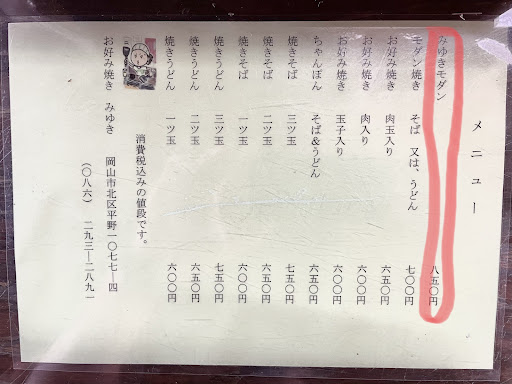 メニュー
みゆきモダン 八五〇円
モダン焼き そば 又は、うどん 七〇〇円
お好み焼き 肉玉入り 六五〇円
お好み焼き 肉入り 六〇〇円
お好み焼き 玉子入り 六〇〇円
ちゃんぽん そば&うどん 六五〇円
焼きそば 三ツ玉 七五〇円
焼きそば 二ツ玉 六五〇円
焼きそば 一ツ玉 六〇〇円
焼きうどん 三ツ玉 七五〇円
焼きうどん 二ツ玉 六五〇円
焼きうどん 一ツ玉 六〇〇円
消費税込みの値段です。
お好み焼き みゆき 岡山市北区平野一〇七七―四
(〇八六) 二九三―二八九一